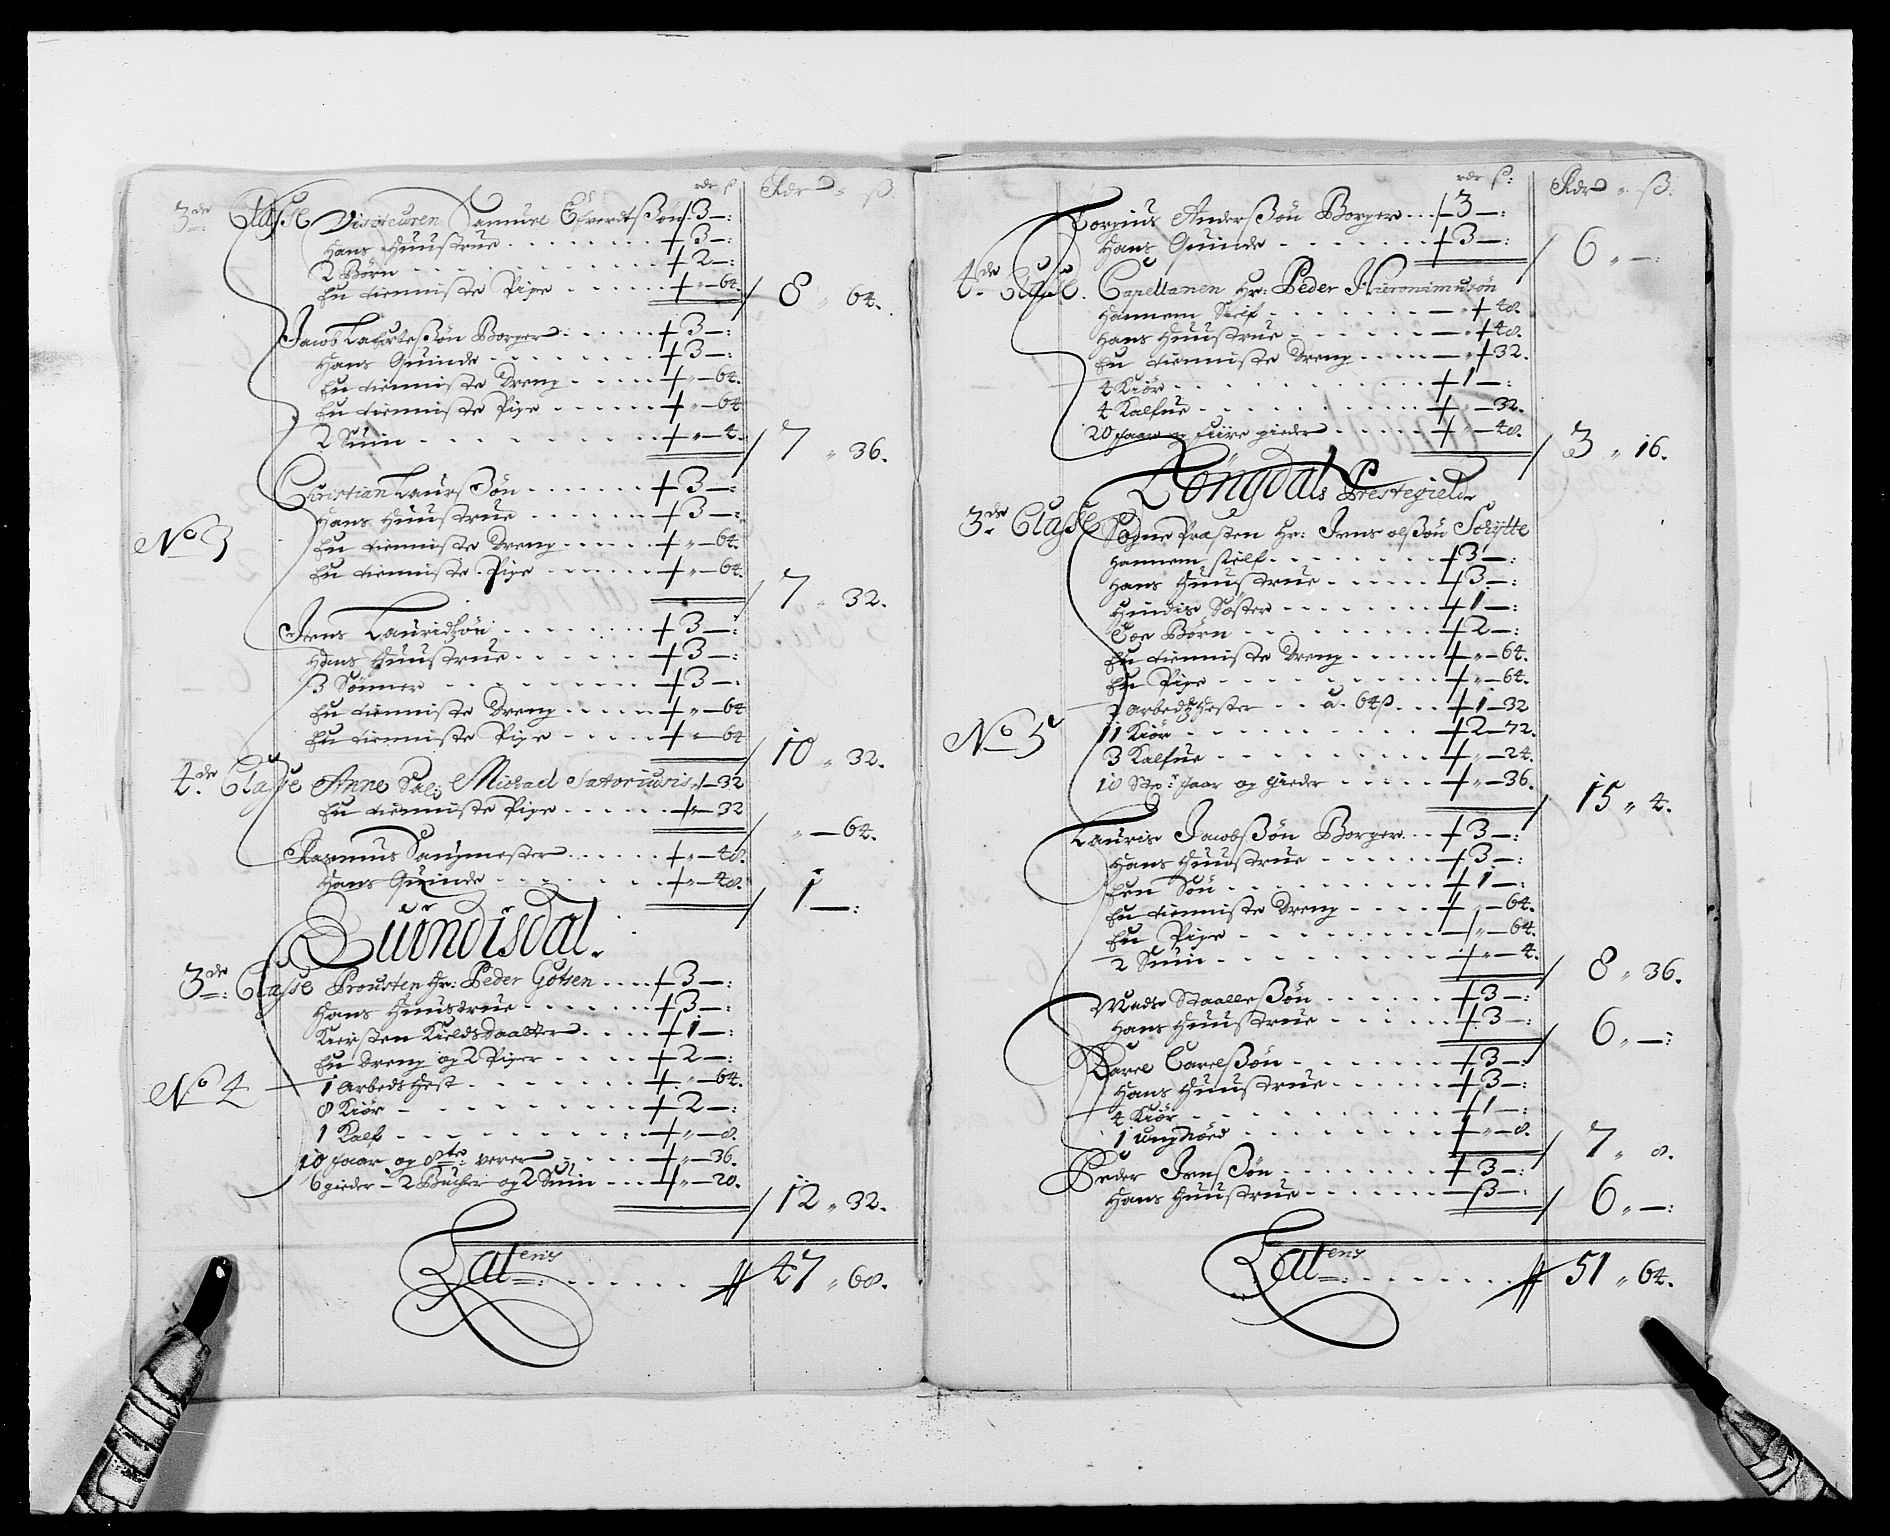 rdr ß Rdr ß.
3de Classe Visiteuren Samuel Efverdtßøn 3 —:
Hans Huustrue + 3 —:
2 Børn + 2 —:
En tienniste Pige + „ — 64. 8 „ 64.
Jacob Laberteßøn Borger + 3 —:
Hans Quinde + 3 —:
En tienniste Dreng + „ — 64.
En tienniste Pige + „ — 64
2 Suin + „ — 4. 7 „ 36.
Christian Laurßøn + 3 —:
Hans Huustrue + 3 —:
No 3
En tienniste Dreng + „ — 64.
En tienniste Pige + „ — 64. 7 „ 32.
Jens Lauridßøn + 3 —:
Hans Huustrue + 3 —:
3 Sønner + 3 —:
En tienniste Dreng + „ — 64
En tienniste Pige + „ — 64 10 „ 32.
4de Classe Anne Sal: Michael Satoriusis + 32
En tienniste Pige + „ — 32 „ — 64.
Rasmus Sangmester + „ — 48.
Hans Quinde + „ — 48. 1 —:
Quindisdal.
3de: Classe Prousten Hr: Peder Gotsen + 3 —:
Hans Huustrue + 3 —:
Kiersten Kields Daatter + 1 —:
En Dreng og 2 Piger + 2 —:
No 4
1 Arbeds Hest + „ — 64.
8 Kiør + 2 —:
1 Kalf + „ — 8.
18 faar og 8te verer + „ — 36.
6 gieder - 2 Bucher og 2 Suin + „ — 20. 12 „ 32.
Latens 47 „ 68.
rdr ß: Rdr ß:
Torgius Anderßøn Borger + 3 —:
Hans Quinde + 3 —: 6 „ —:
4de Classe. Capellanen Hr: Peder Hieronimusøn
Hannem Self — „ + 48.
Hans Huustrue — „ + 48.
En tienniste Dreng — „ + 32.
4 Kiør + 1 —:
4 Kalfue + „ — 32.
20 faar og fiire gieder + „ — 48. 3 „ 16.
Løngdals Prestegield
3de Classe Sogne Præsten Hr: Jens olßøn Schytte
Hannem Sielf + 3 —:
Hans Huustrue + 3 —:
Hendis Søster + 1 —:
Toe Børn + 2 —:
En tienniste Dreng + „ — 64.
En Pige + „ — 64.
2 Arbedtz Hester a. 64 ß + 1 — 32
No 5
11 Kiør + 2 — 72.
3 Kalfue + „ — 24.
18 Stk: faar og Gieder + „ — 36. 15 „ 4.
Lauris Jacobßøn Borger + 3 —:
Hans Huustrue + 3 —:
Een Søn + 1 —:
En tienniste Dreng + „ — 64.
En Pige „ — 64.
2 Suin + „ — 4. 8 „ 36.
Mads Staalleßøn + 3 —:
Hans Huustrue + 3 —: 6 „ —:
Carel Carelßøn + 3 —:
Hans Huustrue + 3 —:
4 Kiør + 1 —:
1 Ung Nøed + „ — 8. 7 „ 8.
Peder Jenßøn + 3 —:
Hans Huustrue 3 —: 6 „ —:
Latens 51 „ 64.